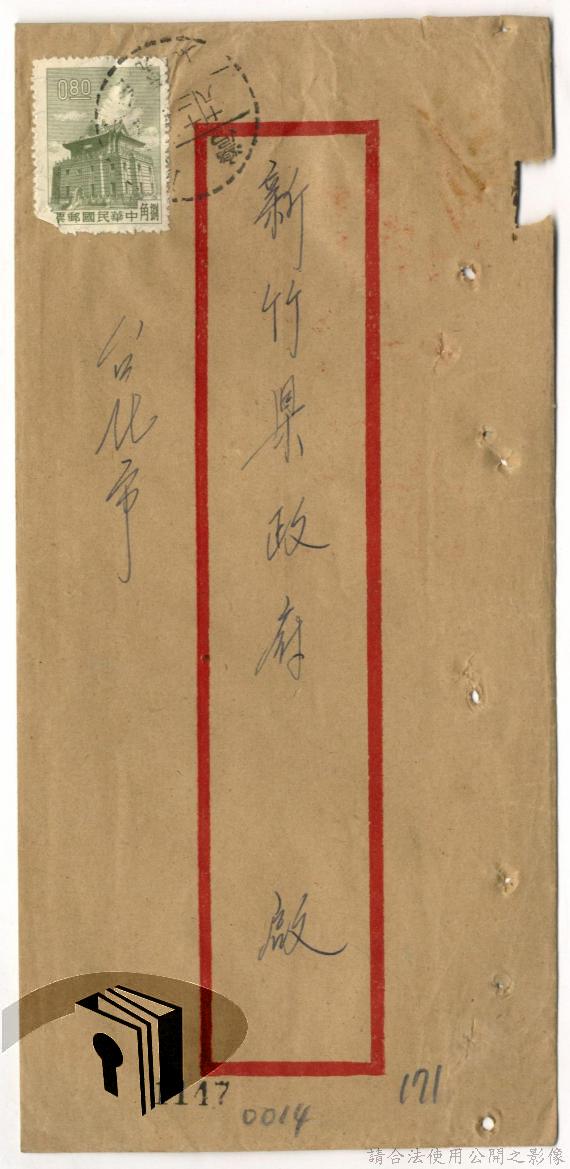 0.80
中華民國郵票
捌角
新竹県政府 啟
台北市
1147
0014
171
請合法使用公開之影像